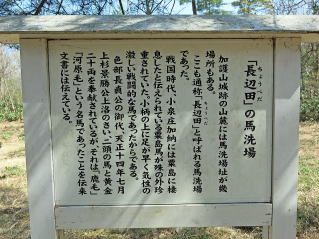 ちょうべだ
「長辺田」の馬洗場
加護山城跡の山麓には馬洗場址が幾
場所もある。
ここも通称「長辺田」と呼ばれる馬洗場
であった。
戦国時代、小泉庄加納には粟島に棲
息したと伝えられている粟島馬が殊の外珍
重されていた。小柄の上に足が早く気性の
激しい戦闘的な馬であったからである。
色部長真公の御代、天正十四年七月
上杉景勝公上洛のさい、二頭の馬と黄金
二十両を奉献されているが、それは、「鹿毛」
「河原毛」という名馬であったことを伝来
文書には伝えている。